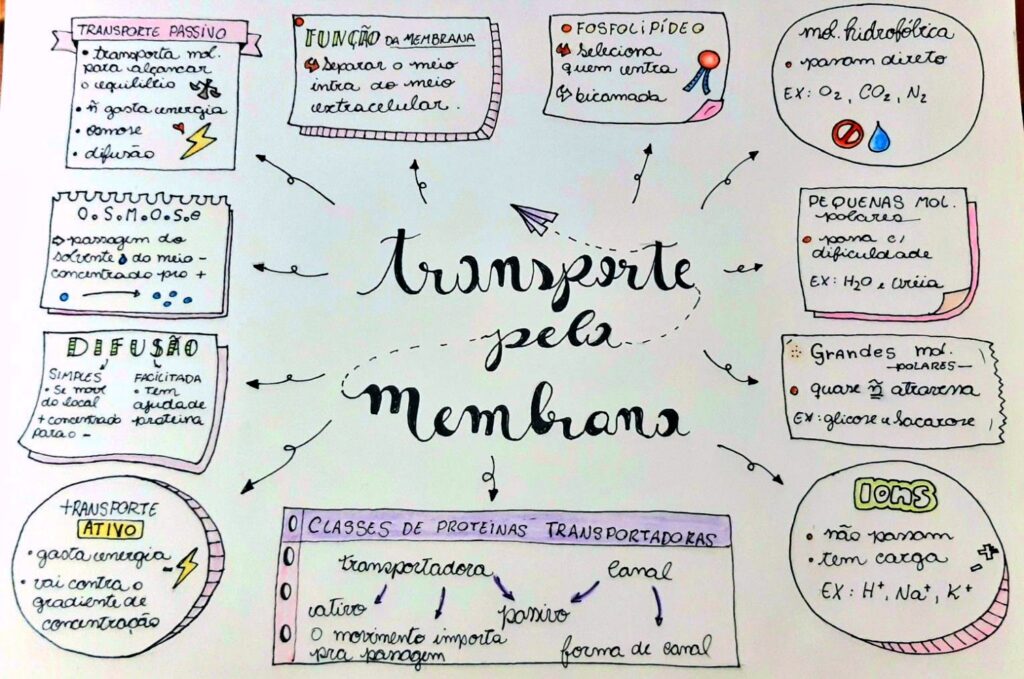 transporte
pela
Membrana
TRANSPORTE PASSIVO
• transporta mol.
para alcançar
o equilíbrio
• ñ gasta energia
• osmose
• difusão
FUNÇÃO DA MEMBRANA
Separar o meio
intra do meio
extracelular.
FOSFOLIPÍDEO
Seleciona
quem entra
bicamada
mol. hidrofóbica
• passam direto
EX: O₂, CO₂, N₂
PEQUENAS MOL.
polares
• passa c/
dificuldade
EX: H₂O e uréia
Grandes mol.
—POLARES—
• quase ñ atravessa
EX: glicose e sacarose
Ions
• não passam
• tem carga
EX: H⁺, Na⁺, K⁺
O.S.M.O.S.e
⇨ passagem do
solvente do meio -
concentrado pro +
DIFUSÃO
SIMPLES
• Se move
do local
+ concentrado
para o -
FACILITADA
• Tem
ajuda de
proteína
TRANSPORTE
ATIVO
• gasta energia
• vai contra o
gradiente de
concentração
CLASSES DE PROTEÍNAS TRANSPORTADORAS
transportadora
canal
ativo
passivo
O movimento importa
pra passagem
forma de canal